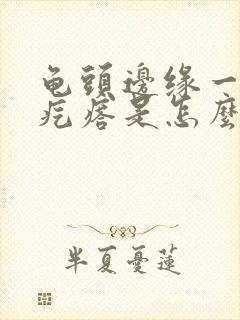 龟頭邊緣一
疙瘩是怎麼
半夏憂蓮